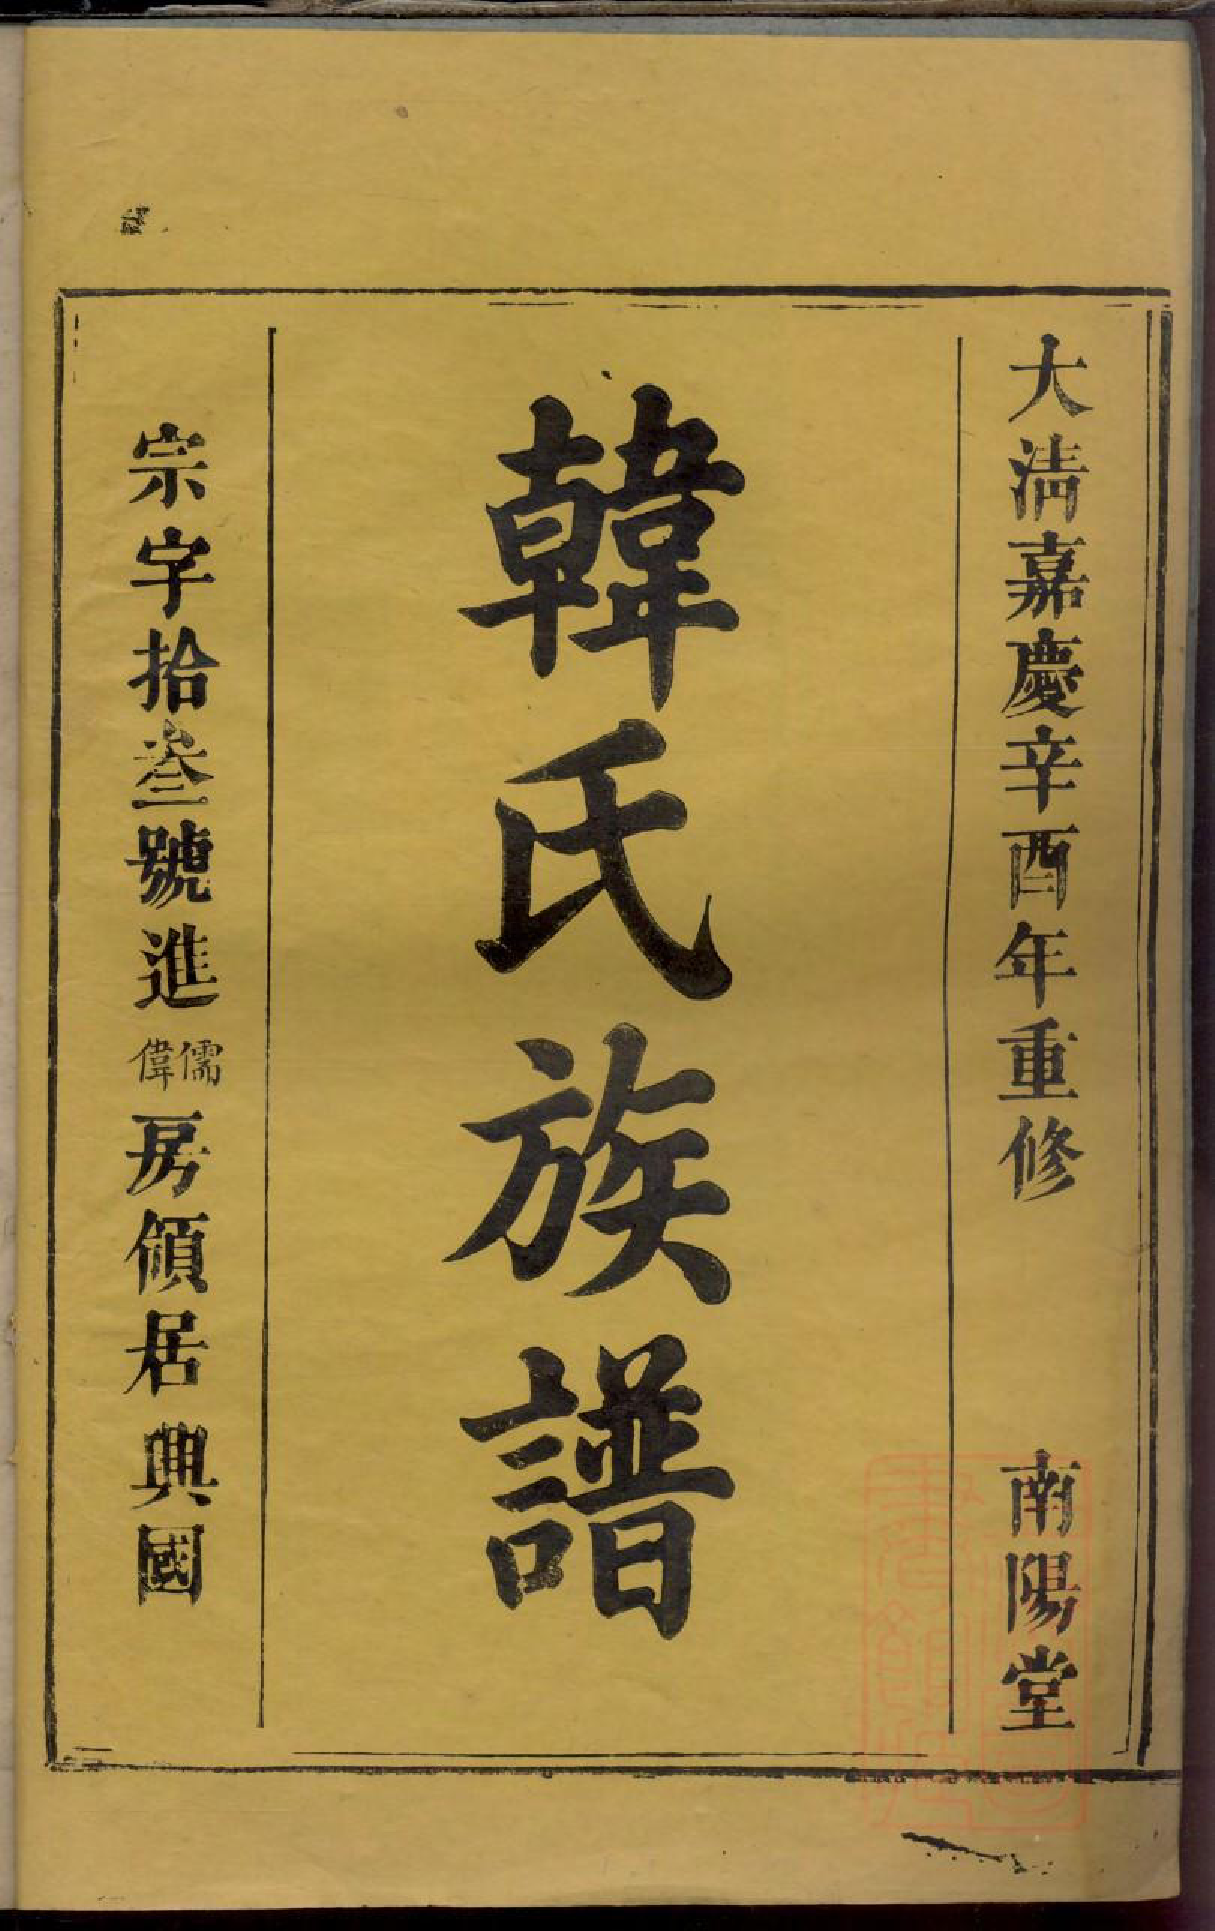 大清嘉慶辛酉年重修 南陽堂
韓氏族譜
宗字拾叁號進儒偉房領居典國